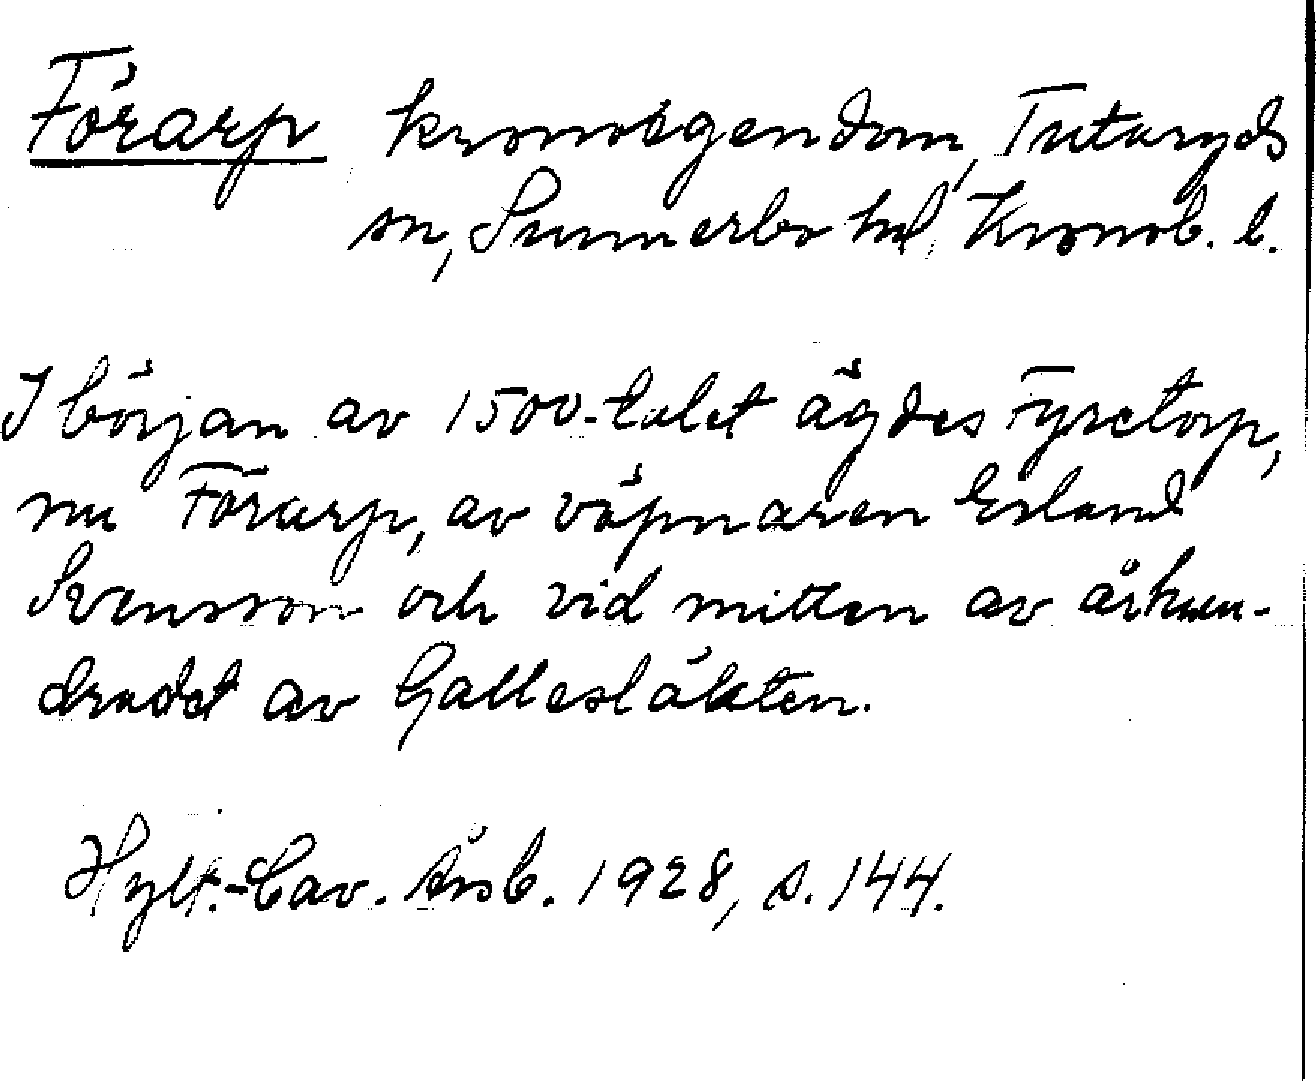 Förarp kronoegendom, Tutaryds
sn, Sunnerbo hd, Kronob. l.
I början av 1500-talet ägdes Fyretorp,
nu Förarp, av väpnaren Erland
Svensson och vid mitten av århun-
dradet av Gallesläkten.
Hylt.-Cav. Årsb. 1928, s. 144.